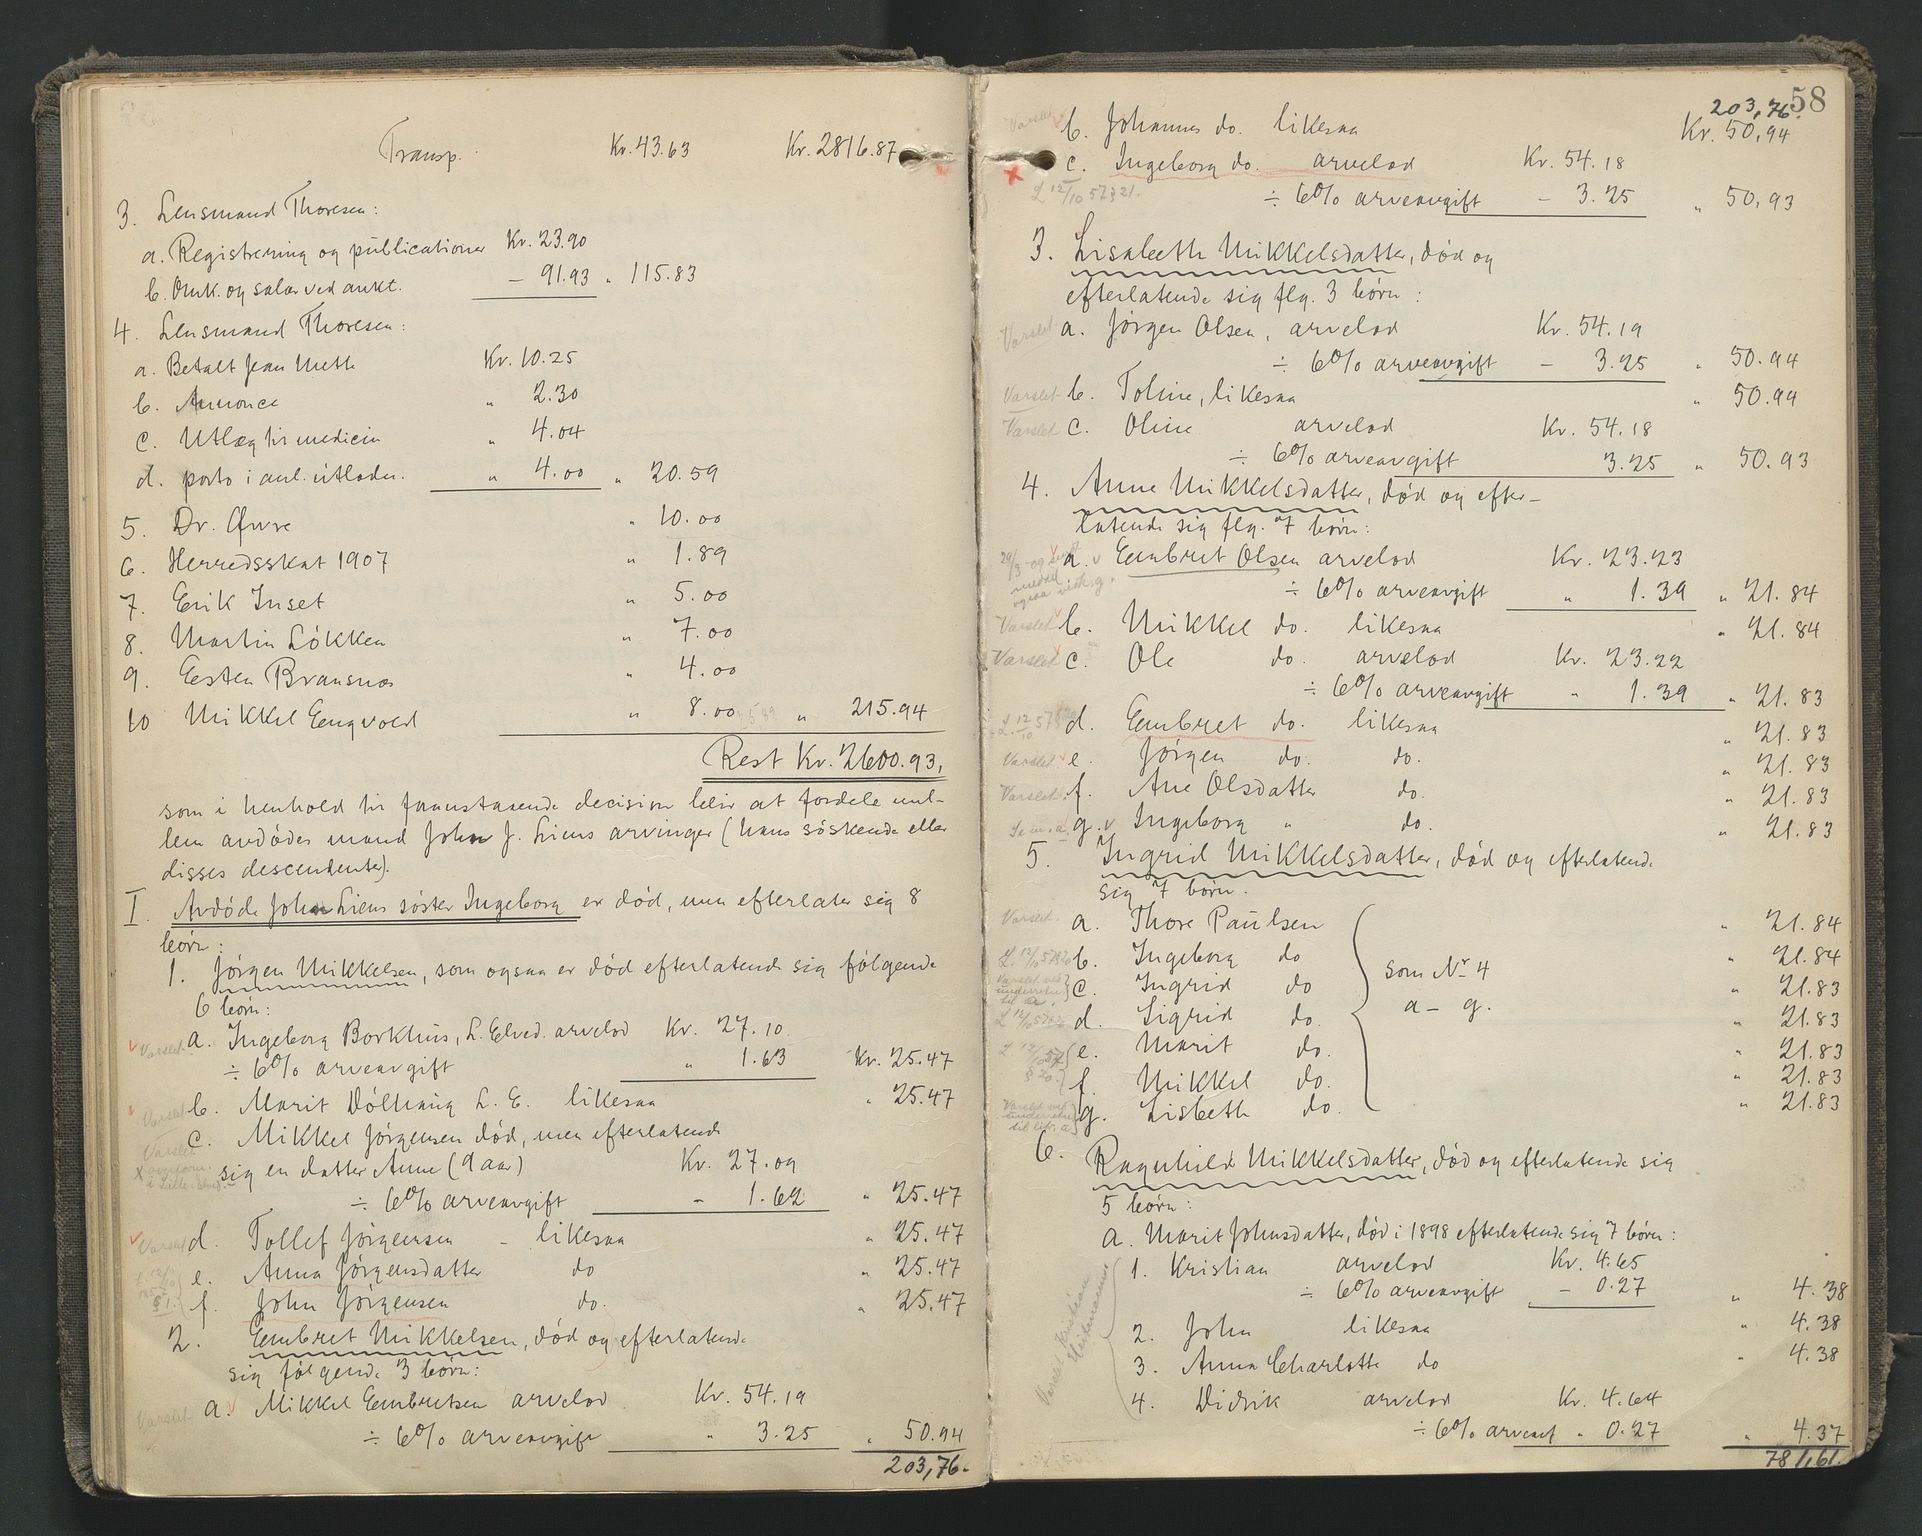 Transp. Kr. 43.63 Kr. 2816.87
3. Lensmand Thoresen:
a. Registrering og publicationer Kr. 23.90
b. Omk. og salar ved aukt. – 91.93 " 115.83
4. Lensmand Thoresen:
a. Betalt Jean Meth Kr. 10.25
b. Annonce " 2.30
c. Utlæg for medicin " 4.04
d. porto i anl. utlodn. " 4.00 " 20.59
5. Dr. Øwre " 10.00
6. Herredsskat 1907 " 1.89
7. Erik Inset " 5.00
8. Martin Løkken " 7.00
9. Esten Bransnæs " 4.00
10 Mikkel Eengvold " 8.00 " 215.94
Rest Kr. 2600.93,
som i henhold til foranstaaende decision blir at fordele mel-
lem avdødes mand John J. Liens arvinger (hans søskende eller
disses descendenter).
I. Avdøde John Liens søster Ingeborg er død, men efterlater sig 8
børn:
1. Jørgen Mikkelsen, som ogsaa er død efterlatende sig følgende
6 børn:
Varslet a. Ingeborg Borkhus, L. Elved. arvelod Kr. 27.10
÷ 6% arveavgift " 1.63 Kr. 25.47
Varslet b. Marit Døltning L. E. likesaa " 25.47
c. Mikkel Jørgensen død, men efterlatende
Varslet
sig en datter Anne (9 aar) Kr. 27.09
÷ 6% arveavgift – 1.62 " 25.47
Varslet d. Tollef Jørgensen – likesaa " 25.47
e. Anna Jørgensdatter do " 25.47
f. John Jørgensen do. " 25.47
2. Embret Mikkelsen, død og efterlatende
sig følgende 3 børn:
Varslet a. Mikkel Embretsen arvelod Kr. 54.19
÷ 6% arveavgift " 3.25 " 50.94
203,76.
58
203,76.
Varslet b. Johannes do. likesaa Kr. 50,94
c. Ingeborg do. arvelod Kr. 54.18
L 12/10 57321. ÷ 6% arveavgift – 3.25 " 50,93
3. Lisabeth Mikkelsdatter, død og
efterlatende sig flg. 3 børn:
Varslet a. Jørgen Olsen, arvelod Kr. 54.19
÷ 6% arveavgift – 3.25 " 50.94
Varslet b. Toline, likesaa " 50.94
Varslet c. Oline arvelod Kr. 54.18
÷ 6% arveavgift 3.25 " 50.93
4. Anne Mikkelsdatter, død og efter-
latende sig flg. 7 børn:
a. Embret Olsen arvelod Kr. 23.23
÷ 6% arveavgift " 1.39 " 21.84
Varslet b. Mikkel do. likesaa " 21.84
Varslet c. Ole do. arvelod Kr. 23.22
÷ 6% arveavgift " 1.39 " 21.83
d. Embret do. likesaa " 21.83
Varslet e. Jørgen do. do. " 21.83
Varslet f. Ane Olsdatter do. " 21.83
g. Ingeborg " do. " 21.83
5. Ingrid Mikkelsdatter, død og efterlatende
sig 7 børn.
Varslet a. Thore Paulsen " 21.84
b. Ingeborg do " 21.84
Varslet ved underretn. til a. c. Ingrid do som No 4 " 21.83
d. Sigrid do. a – g. " 21.83
e. Marit do. " 21.83
f. Mikkel do. " 21.83
Varslet ved underretn. til litr. a g. Lisbeth do. " 21.83
6. Ragnhild Mikkelsdatter, død og efterlatende sig
5 børn:
a. Marit Johnsdatter, død i 1898 efterlatende sig 7 børn:
1. Kristian arvelod Kr. 4.65
÷ 6% arveavgift – 0.27 " 4.38
2. John likesaa " 4.38
3. Anna Charlotte do " 4.38
4. Didrik arvelod Kr. 4.64
÷ 6% arveavf " 0.27 " 4.37
781,61.